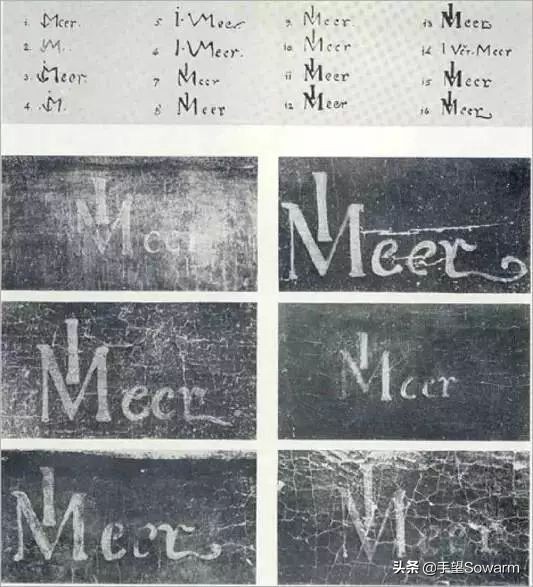 1. Meer.
2. M.
3. Meer.
4. M.
5. i. VMeer.
6. i. VMeer.
7 IMeer
8 IMeer
9. IMeer.
10. IMeer
11 IMeer
12. IMeer
13. IMeer
14 I Vër. Meer
15 IMeer
16. IMeer
IMeer
IMeer
IMeer
IMeer
IMeer
IMeer
头条 @手望Sowarm